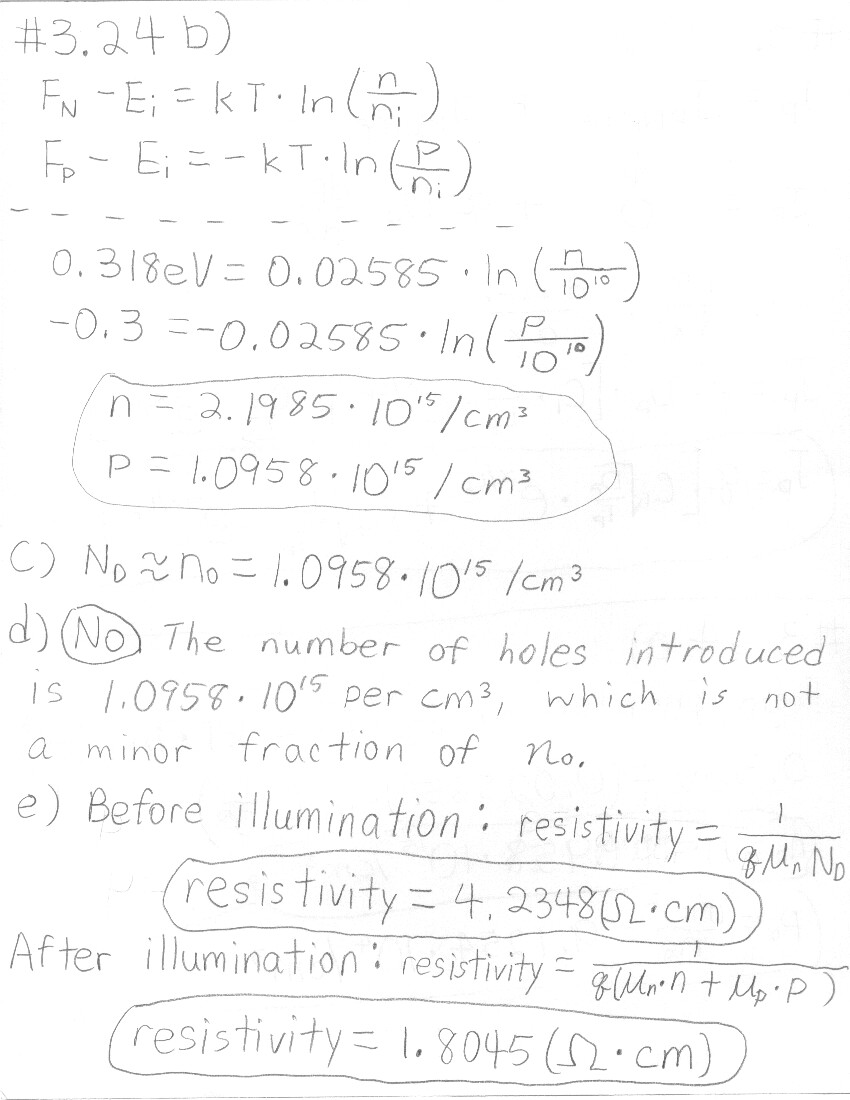 #3.24 b)
F_N - E_i = kT · ln(n/n_i)
F_p - E_i = -kT · ln(p/n_i)
0.318eV = 0.02585 · ln(n/10^10)
-0.3 = -0.02585 · ln(p/10^10)
n = 2.1985 · 10^15/cm³
p = 1.0958 · 10^15 /cm³
c) N_D ≈ n_0 = 1.0958 · 10^15 /cm³
d) No The number of holes introduced
is 1.0958 · 10^15 per cm³, which is not
a minor fraction of n_0.
e) Before illumination: resistivity = 1/(qμ_n N_D)
resistivity = 4.2348(Ω·cm)
After illumination: resistivity = 1/(q(μ_n·n + μ_p·p))
resistivity = 1.8045(Ω·cm)